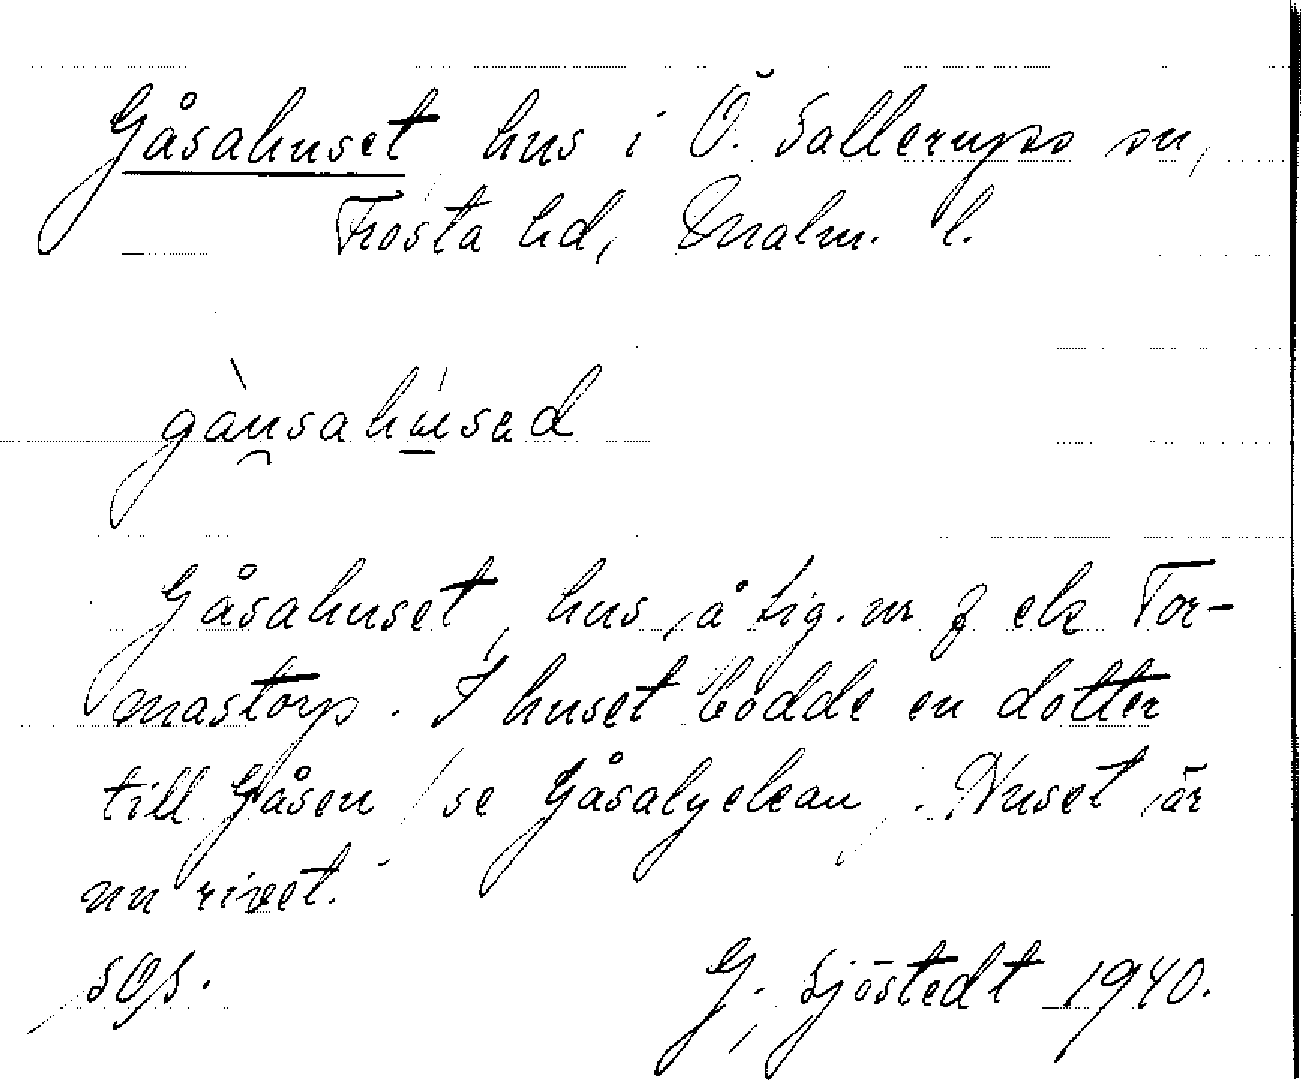 Gåsahuset hus i Ö. Sallerups sn,
Frosta hd, Malm. l.
gànsahúsad
Gåsahuset, hus å lig. nr 8 ele Tor-
mastorp. I huset bodde en dotter
till Gåsen / se Gåsalyckan /. Huset är
nu rivet.
sOs. G. Sjöstedt 1940.